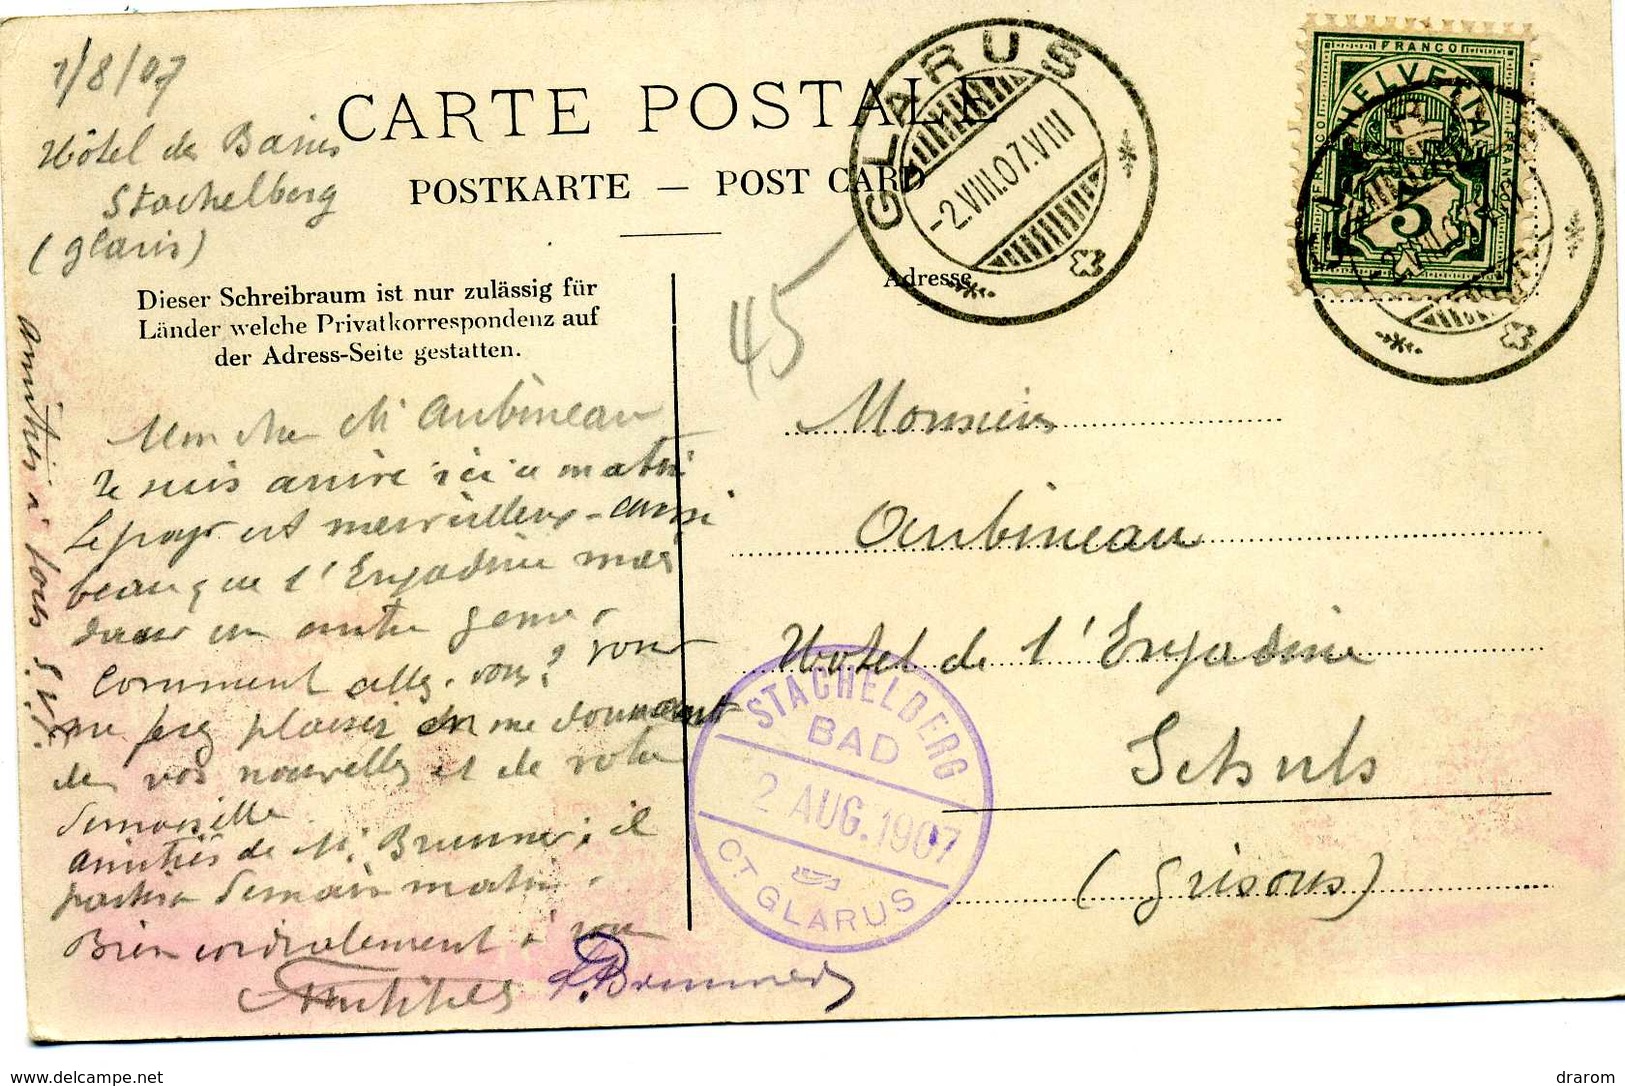 1/8/07
Hôtel des Bains
Stachelberg
(Glaris)
CARTE POSTALE
POSTKARTE — POST CARD
Dieser Schreibraum ist nur zulässig für
Länder welche Privatkorrespondenz auf
der Adress-Seite gestatten.
Adresse
GLARUS
-2.VIII.07.VIII
FRANCO
HELVETIA
FRANCO
FRANCO
5
45
Mon cher Mr Aubineau
Je suis arrivé ici ce matin
Le pays est merveilleux - aussi
beau que l'Engadine mais
dans un autre genre.
Comment allez-vous? vous
me ferez plaisir en me donnant
de vos nouvelles et de votre
demoiselle.
amitiés de Mr Brunner; il
partira demain matin.
Bien cordialement à vous
Brunner
amitiés à tous S.V.P.
Monsieur
Aubineau
Hotel de l'Engadine
Schuls
(Grisons)
STACHELBERG
BAD
2 AUG. 1907
CT GLARUS
www.delcampe.net
drarom